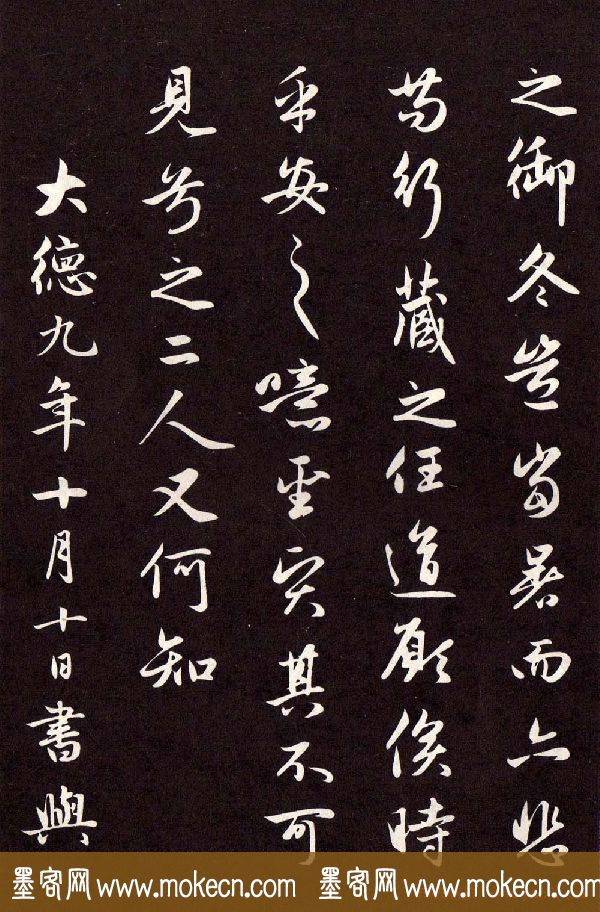 之御冬豈當暑而亦悲
苟行藏之任道顧俟時
乎安之噫聖賢其不可
見兮之二人又何知
大德九年十月十日書與
墨客网 www.mokecn.com 墨客网 www.mokecn.com